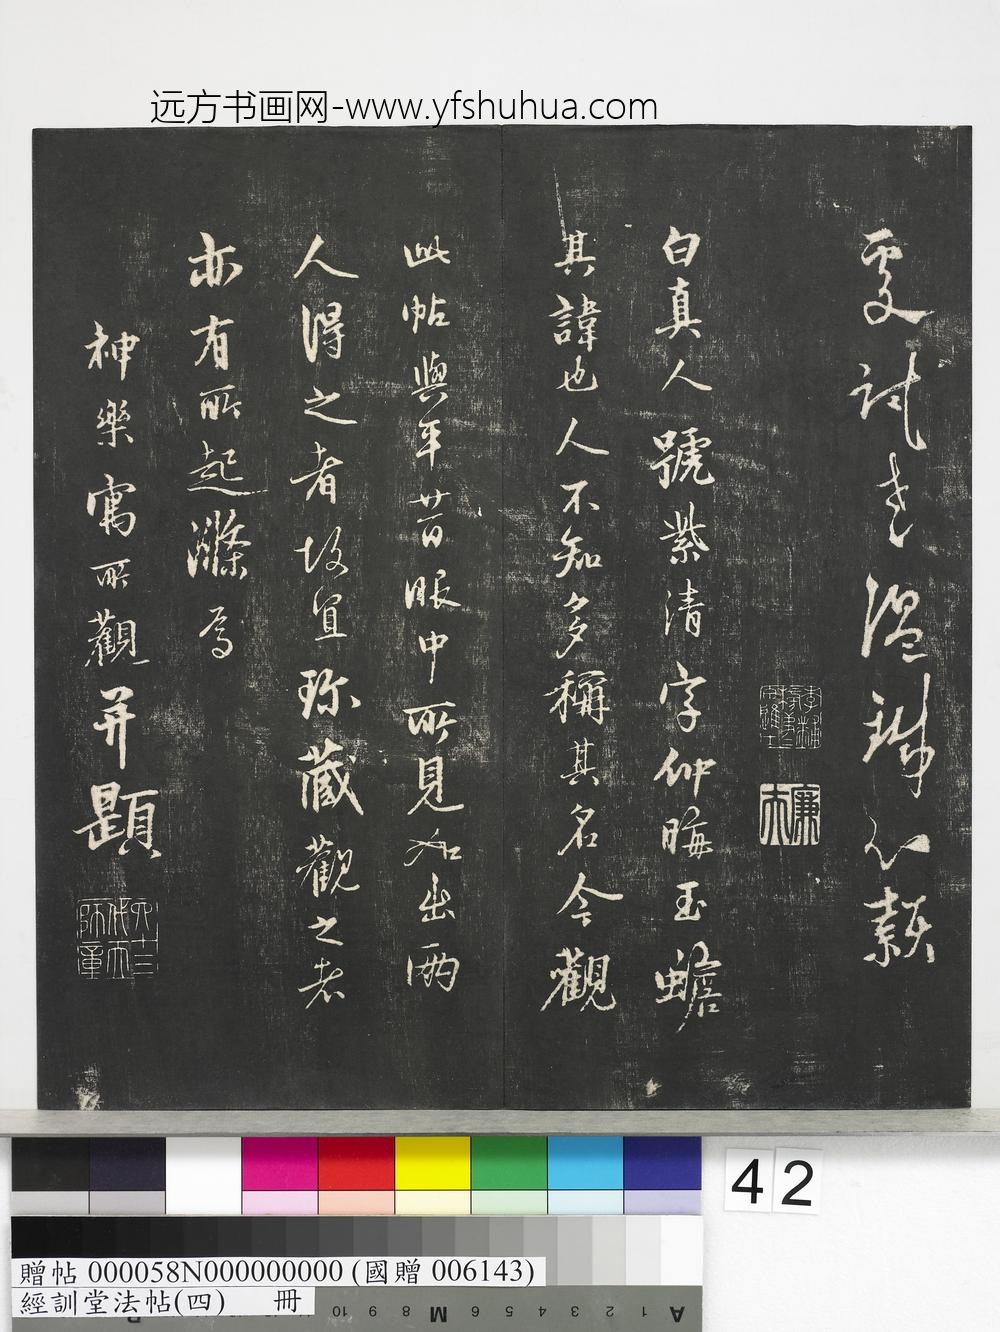 远方书画网-www.yfshuhua.com
白真人號紫清字仰晦玉蟾
其諱也人不知多稱其名今觀
此帖與年昔眼中所見如出兩
人得之者故宜珍藏觀之者
亦有所起滌焉
神樂寓所觀并題
42
贈帖 000058N000000000 (國贈 006143)
經訓堂法帖(四) 冊
10 9 8 M 6 5 4 3 2 1 A